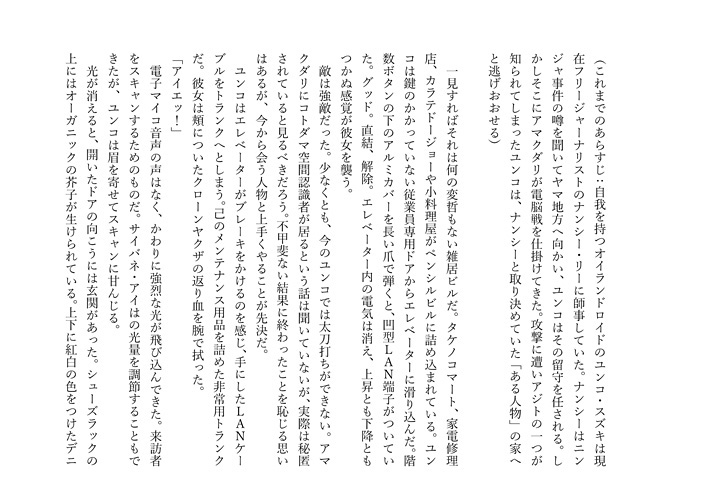 （これまでのあらすじ：自我を持つオイランドロイドのユンコ・スズキは現
在フリージャーナリストのナンシー・リーに師事していた。ナンシーはニン
ジャ事件の噂を聞いてヤマ地方へ向かい、ユンコはその留守を任される。し
かしそこにアマクダリが電脳戦を仕掛けてきた。攻撃に遭いアジトの一つが
知られてしまったユンコは、ナンシーと取り決めていた「ある人物」の家へ
と逃げおおせる）
一見すればそれは何の変哲もない雑居ビルだ。タケノコマート、家電修理
店、カラテドージョーや小料理屋がペンシルビルに詰め込まれている。ユン
コは鍵のかかっていない従業員専用ドアからエレベーターに滑り込んだ。階
数ボタンの下のアルミカバーを長い爪で弾くと、凹型ＬＡＮ端子がついてい
た。グッド。直結、解除。エレベーター内の電気は消え、上昇とも下降とも
つかぬ感覚が彼女を襲う。
敵は強敵だった。少なくとも、今のユンコでは太刀打ちができない。アマ
クダリにコトダマ空間認識者が居るという話は聞いていないが、実際は秘匿
されていると見るべきだろう。不甲斐ない結果に終わったことを恥じる思い
はあるが、今から会う人物と上手くやることが先決だ。
ユンコはエレベーターがブレーキをかけるのを感じ、手にしたＬＡＮケー
ブルをトランクへとしまう。己のメンテナンス用品を詰めた非常用トランク
だ。彼女は頬についたクローンヤクザの返り血を腕で拭った。
「アイエッ！」
電子マイコ音声の声はなく、かわりに強烈な光が飛び込んできた。来訪者
をスキャンするためのものだ。サイバネ・アイはの光量を調節することもで
きたが、ユンコは眉を寄せてスキャンに甘んじる。
光が消えると、開いたドアの向こうには玄関があった。シューズラックの
上にはオーガニックの芥子が生けられている。上下に紅白の色をつけたデニ